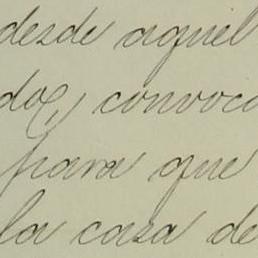 desde aquel
do, convoca
para que
la casa de